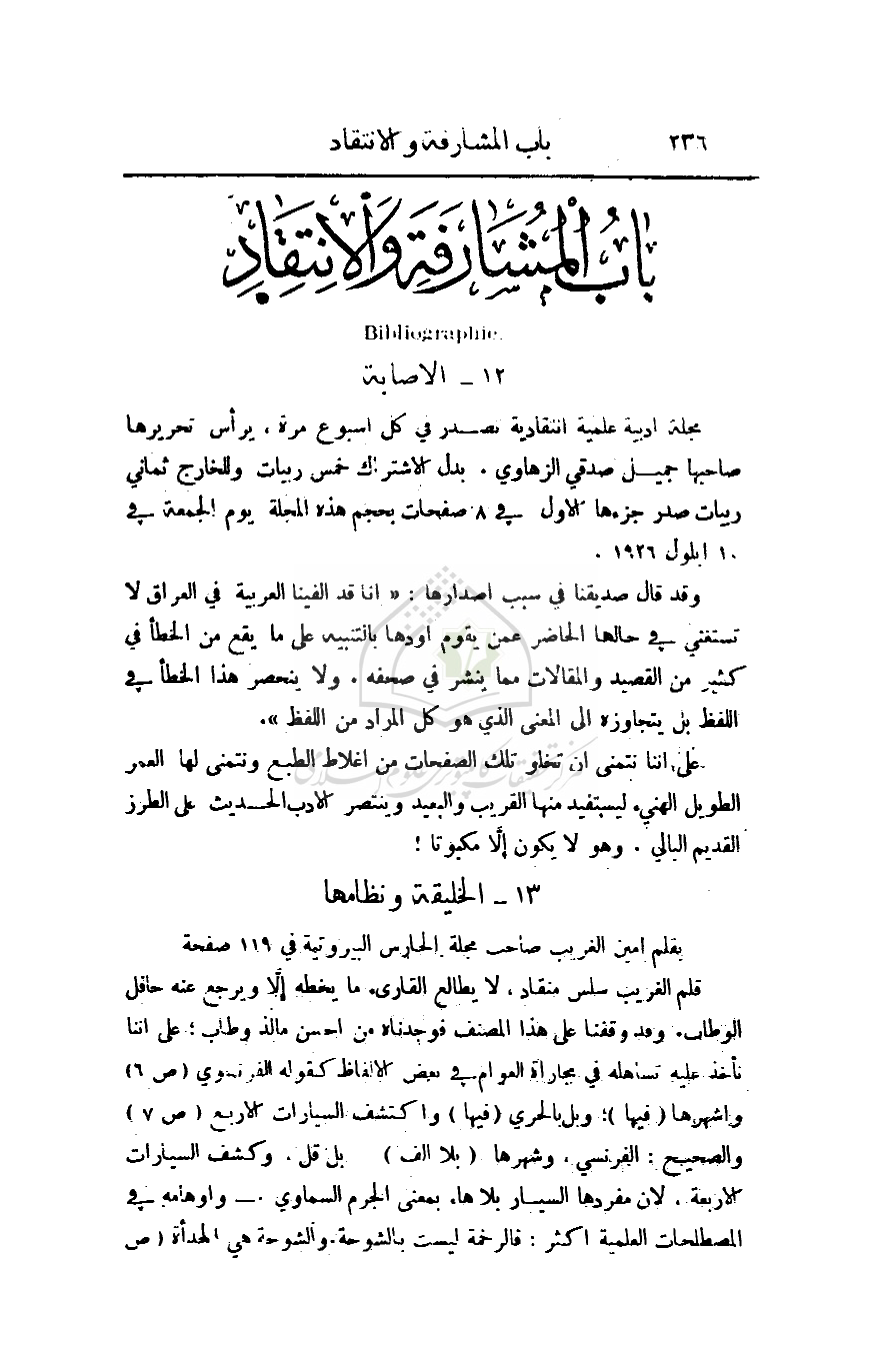 ٢٣٦ باب المشارفة والانتقاد
باب المشارفة والانتقاد
Bibliographie.
١٢ ـ الاصابة
مجلة ادبية علمية انتقادية تصدر في كل اسبوع مرة ، يرأس تحريرها
صاحبها جميل صدقي الزهاوي . بدل الاشتراك خمس ربيات وللخارج ثماني
ربيات صدر جزءها الاول في ٨ صفحات بحجم هذه المجلة يوم الجمعة في
١٠ ايلول ١٩٢٦ .
وقد قال صديقنا في سبب اصدارها : « انا قد الفينا العربية في العراق لا
تستغني في حالها الحاضر عمن يقوم اودها بالتنبيه على ما يقع من الخطأ في
كثير من القصيد والمقالات مما ينشر في صحفه . ولا ينحصر هذا الخطأ في
اللفظ بل يتجاوزه الى المعنى الذي هو كل المراد من اللفظ ».
على اننا نتمنى ان تخلو تلك الصفحات من اغلاط الطبع ونتمنى لها العمر
الطويل الهنيء ليستفيد منها القريب والبعيد وينتصر الادب الحديث على الطرز
القديم البالي . وهو لا يكون إلّا مكبوتا !
١٣ ـ الخليقة ونظامها
بقلم امين الغريب صاحب مجلة الحارس البيروتية في ١١٩ صفحة
قلم الغريب سلس منقاد ، لا يطالع القارىء ما يخطه إلّا ويرجع عنه حافل
الوطاب. وقد وقفنا على هذا المصنف فوجدناه من احسن ما لذ وطاب ؛ على اننا
نأخذ عليه تساهله في مجاراة العوام في بعض الالفاظ كقوله الفرنسوي ( ص ٦)
واشهرها ( فيها )؛ وبل بالحري (فيها ) واكتشف السيارات الاربع ( ص ٧ )
والصحيح : الفرنسي ، وشهرها ( بلا الف ) بل قل . وكشف السيارات
الاربعة . لان مفردها السيار بلا هاء بمعنى الجرم السماوي .ـ واوهامه في
المصطلحات العلمية اكثر : فالرخمة ليست بالشوحة. والشوحة هي الحدأة ( ص
مركز تحقيقات كامپيوترى علوم اسلامى